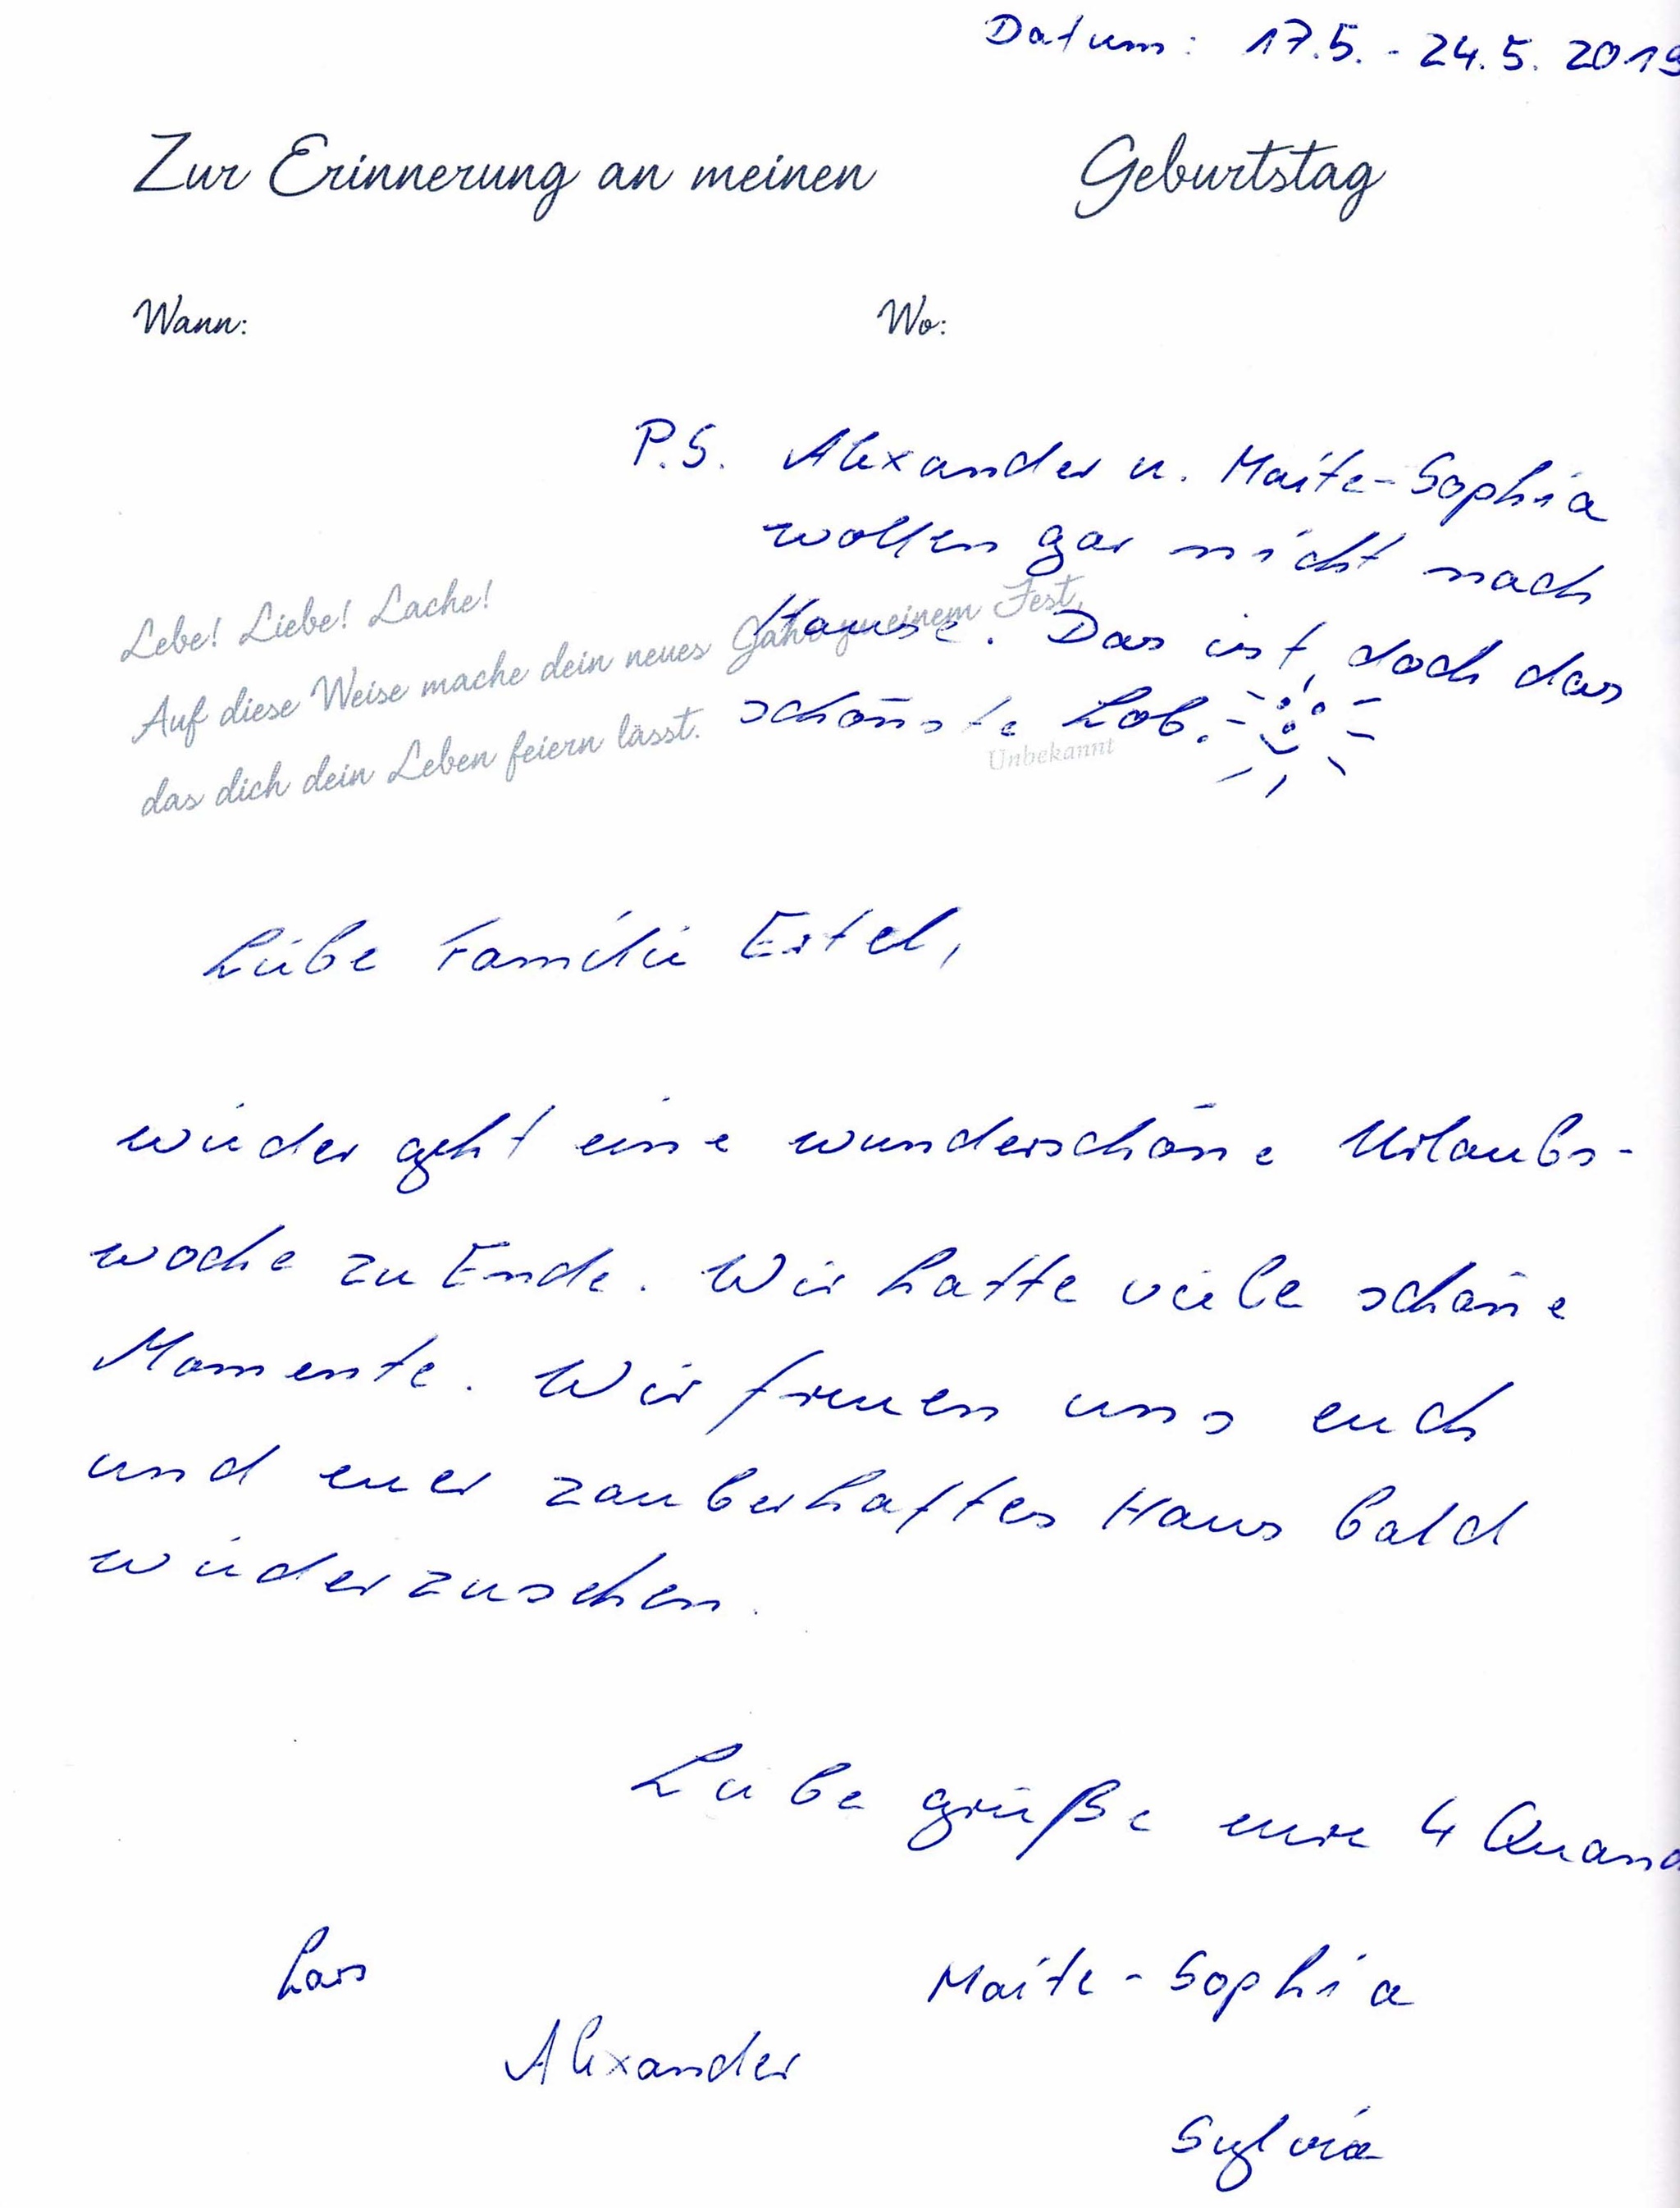 Datum: 17.5. - 24.5. 2019
Zur Erinnerung an meinen Geburtstag
Wann: Wo:
P.S. Alexander u. Maite-Sophia
wollen gar nicht nach
Hause. Das ist doch das
schönste Lob.
Lebe! Liebe! Lache!
Auf diese Weise mache dein neues Jahr zu einem Fest,
das dich dein Leben feiern lässt.
Unbekannt
Liebe Familie Ertel,
wieder geht eine wunderschöne Urlaubs-
woche zu Ende. Wir hatte viele schöne
Momente. Wir freuen uns euch
und euer zauberhaftes Haus bald
wiederzusehen.
Liebe grüße eure 4
Lars
Maite-Sophia
Alexander
Sylvia